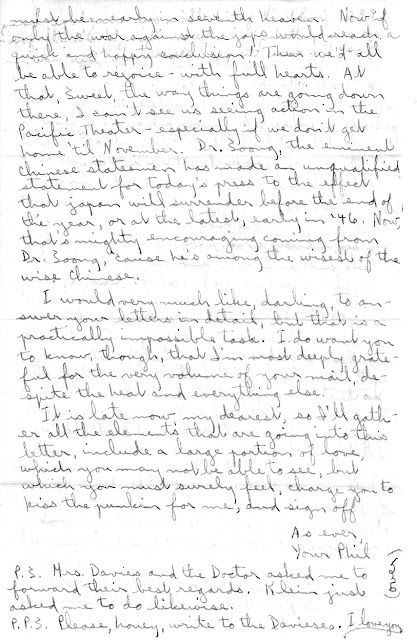 must be nearly in seventh heaven. Now if
only the war against the japs would reach a
quick and happy conclusion! Then we'd all
be able to rejoice - with full hearts. At
that, Sweet, the way things are going down
there, I can't see us seeing action in the
Pacific Theater - especially if we don't get
home 'til November. Dr. Soong, the eminent
Chinese statesman has made an unqualified
statement for today's press to the effect
that japan will surrender before the end of
the year, or at the latest, early in '46. Now,
that's mighty encouraging coming from
Dr. Soong, 'cause he's among the wisest of the
wise Chinese.
I would very much like, darling, to an-
swer your letters in detail, but that is a
practically impossible task. I do want you
to know, though, that I'm most deeply grate-
ful for the very volume of your mail, de-
spite the heat and everything else.
It is late now, my dearest, so I'll gath-
er all the elements that are going into this
letter, include a large portion of love,
which you may not be able to see, but
which you must surely feel, charge you to
kiss the punkin for me, and sign off
As ever,
Your Phil
P.S. Mrs. Davies and the Doctor asked me to
forward their best regards. Klein just
asked me to do likewise.
P.P.S. Please, honey, write to the Davieses. I love you